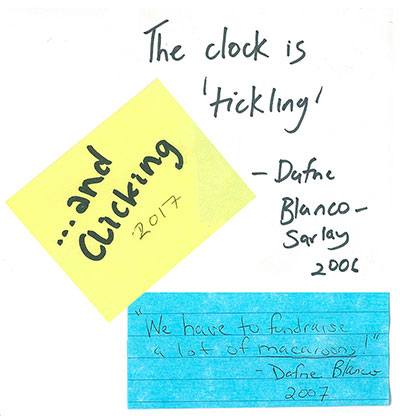 The clock is
'tickling'
- Dafne
Blanco-
Sarlay
2006
...and
Clicking
2017
"We have to fundraise
a lot of macaroons!"
- Dafne Blanco
2007